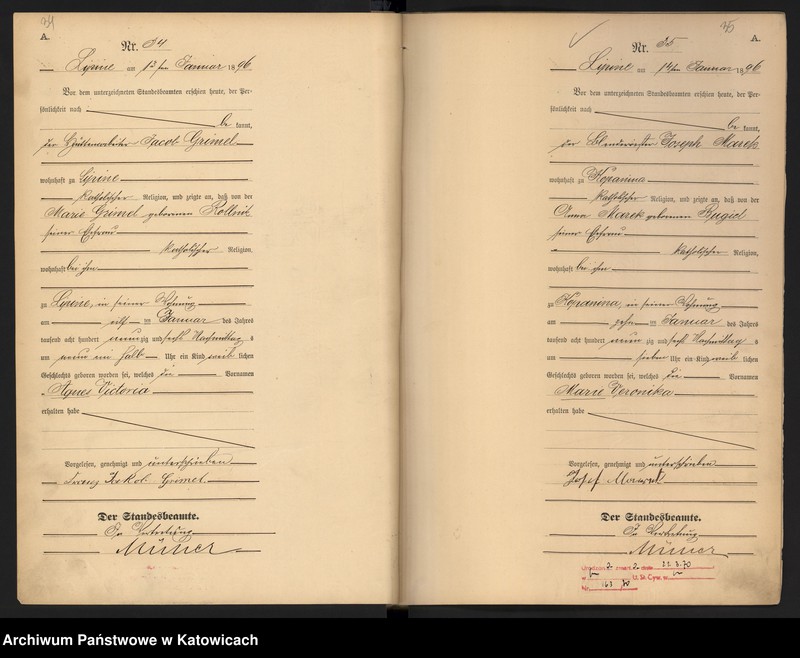 34
A.
Nr. 34
Lipine am 13ten Januar 1896
Vor dem unterzeichneten Standesbeamten erschien heute, der Per-
sönlichkeit nach
be kannt,
der Hüttenarbeiter Jacob Grimel
wohnhaft zu Lipine
katholischer Religion, und zeigte an, daß von der
Marie Grimel geborenen
seiner Ehefrau
katholischer Religion,
wohnhaft bei ihm
zu Lipine, in seiner Wohnung
am elf ten Januar des Jahres
tausend acht hundert neun zig und sechs Nachmittag s
um neun ein halb Uhr ein Kind weib lichen
Geschlechts geboren worden sei, welches die Vornamen
Agnes Victoria
erhalten habe
Vorgelesen, genehmigt und unterschrieben
Franz Jakob Grimel
Der Standesbeamte.
In Vertretung
Müller
35
A.
Nr. 35
Lipine am 14ten Januar 1896
Vor dem unterzeichneten Standesbeamten erschien heute, der Per-
sönlichkeit nach
be kannt,
der Joseph Marek
wohnhaft zu Kopanina
katholischer Religion, und zeigte an, daß von der
Anna Marek geborenen
seiner Ehefrau
katholischer Religion,
wohnhaft bei ihm
zu Kopanina, in seiner Wohnung
am zehn ten Januar des Jahres
tausend acht hundert neun zig und sechs Nachmittag s
um sieben Uhr ein Kind weib lichen
Geschlechts geboren worden sei, welches die Vornamen
Marie Veronika
erhalten habe
Vorgelesen, genehmigt und unterschrieben
Josef
Der Standesbeamte.
In Vertretung
Müller
Nr. 163 70
Archiwum Państwowe w Katowicach